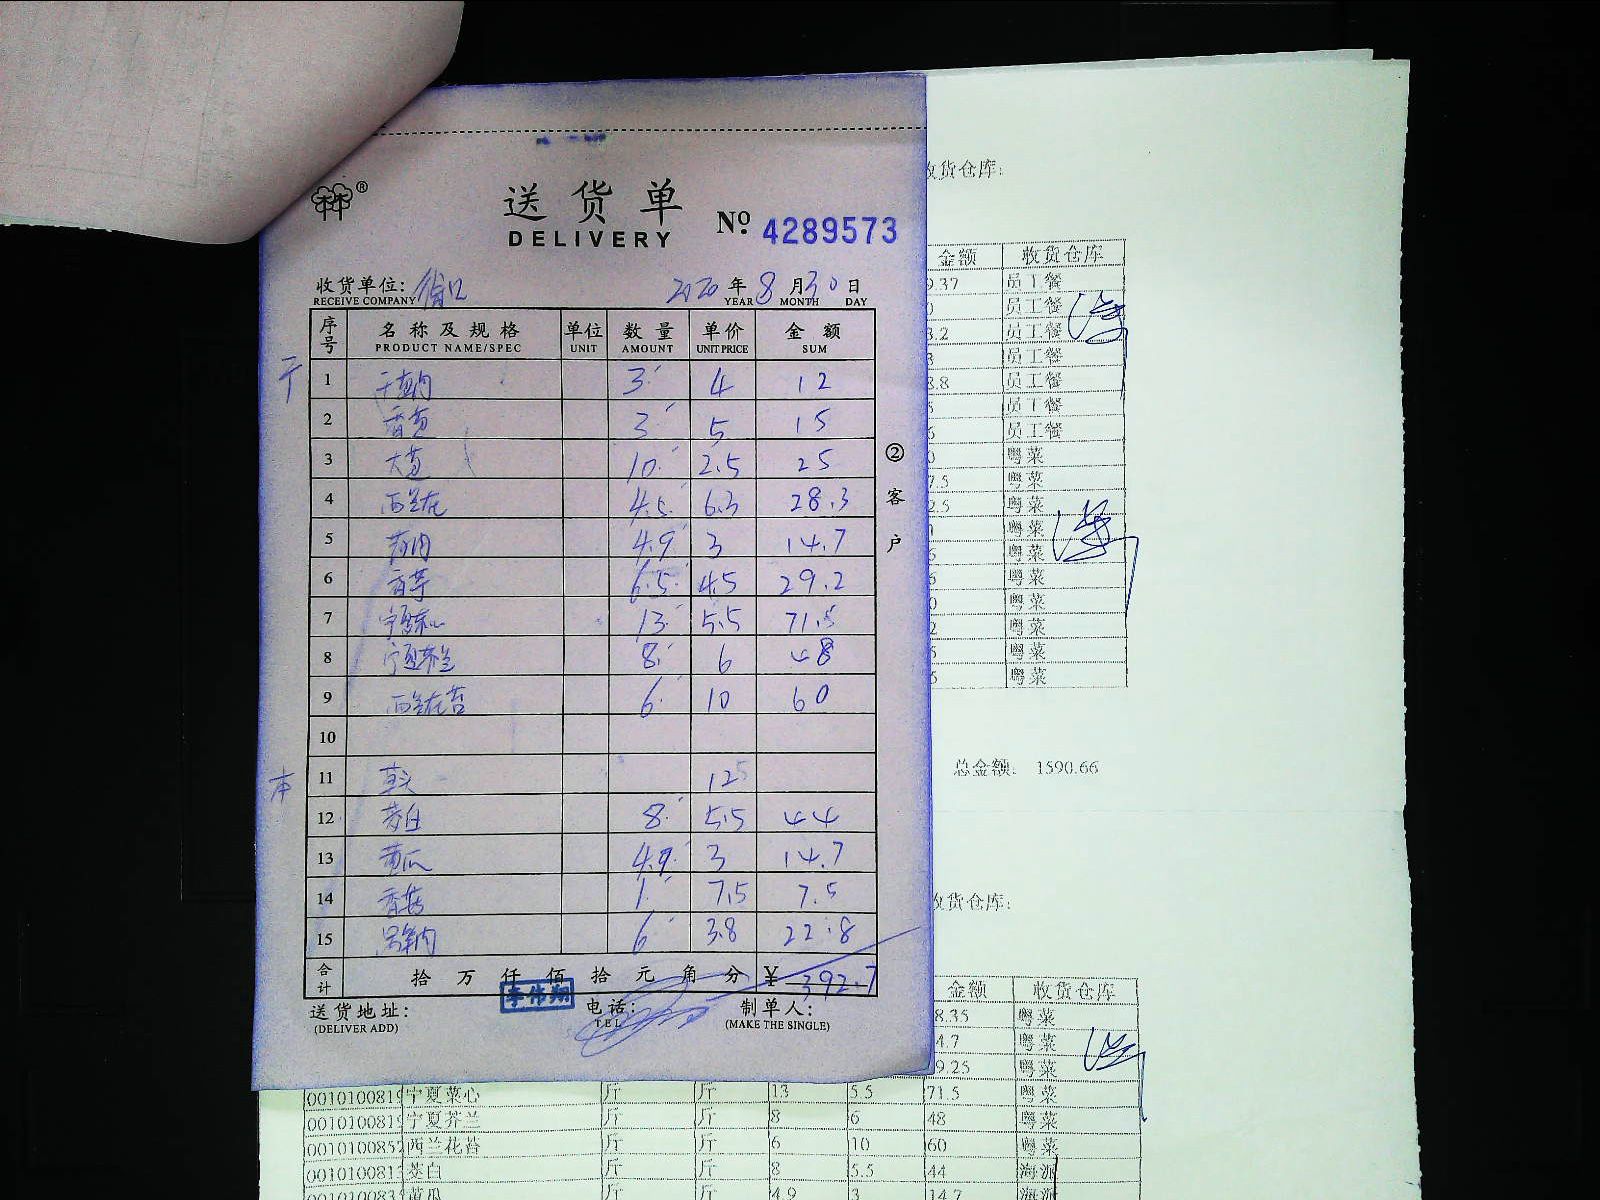 送货单
DELIVERY
№ 4289573
收货单位:
RECEIVE COMPANY
2020 年 8 月 30 日
YEAR MONTH DAY
序号 名称及规格 单位 数量 单价 金额
PRODUCT NAME/SPEC UNIT AMOUNT UNIT PRICE SUM
1 3 4 12
2 3 5 15
3 10 2.5 25
4 西兰花 4.5 6.3 28.3
5 4.9 3 14.7
6 香芋 6.5 4.5 29.2
7 宁夏菜心 13 5.5 71.5
8 宁夏芥兰 8 6 48
9 西兰花苔 6 10 60
10
本
11 12
12 茭白 8 5.5 44
13 黄瓜 4.9 3 14.7
14 香菇 1 7.5 7.5
15 6 3.8 22.8
合计 拾 万 仟 佰 拾 元 角 分 ¥ 392.7
李伟翔
送货地址: 电话: 制单人:
(DELIVER ADD) TEL (MAKE THE SINGLE)
②客户
收货仓库:
金额 收货仓库
9.37 员工餐
0 员工餐
3.2 员工餐
3 员工餐
8.8 员工餐
5 员工餐
员工餐
0 粤菜
7.5 粤菜
2.5 粤菜
粤菜
粤菜
粤菜
0 粤菜
2 粤菜
粤菜
粤菜
总金额: 1590.66
收货仓库:
金额 收货仓库
8.35 粤菜
4.7 粤菜
9.25 粤菜
001010081 宁夏菜心 斤 斤 13 5.5 71.5 粤菜
001010081 宁夏芥兰 斤 斤 8 6 48 粤菜
001010085 西兰花苔 斤 斤 6 10 60 粤菜
001010081 茭白 斤 斤 8 5.5 44 海派
001010083 黄瓜 斤 斤 4.9 3 14.7 海派